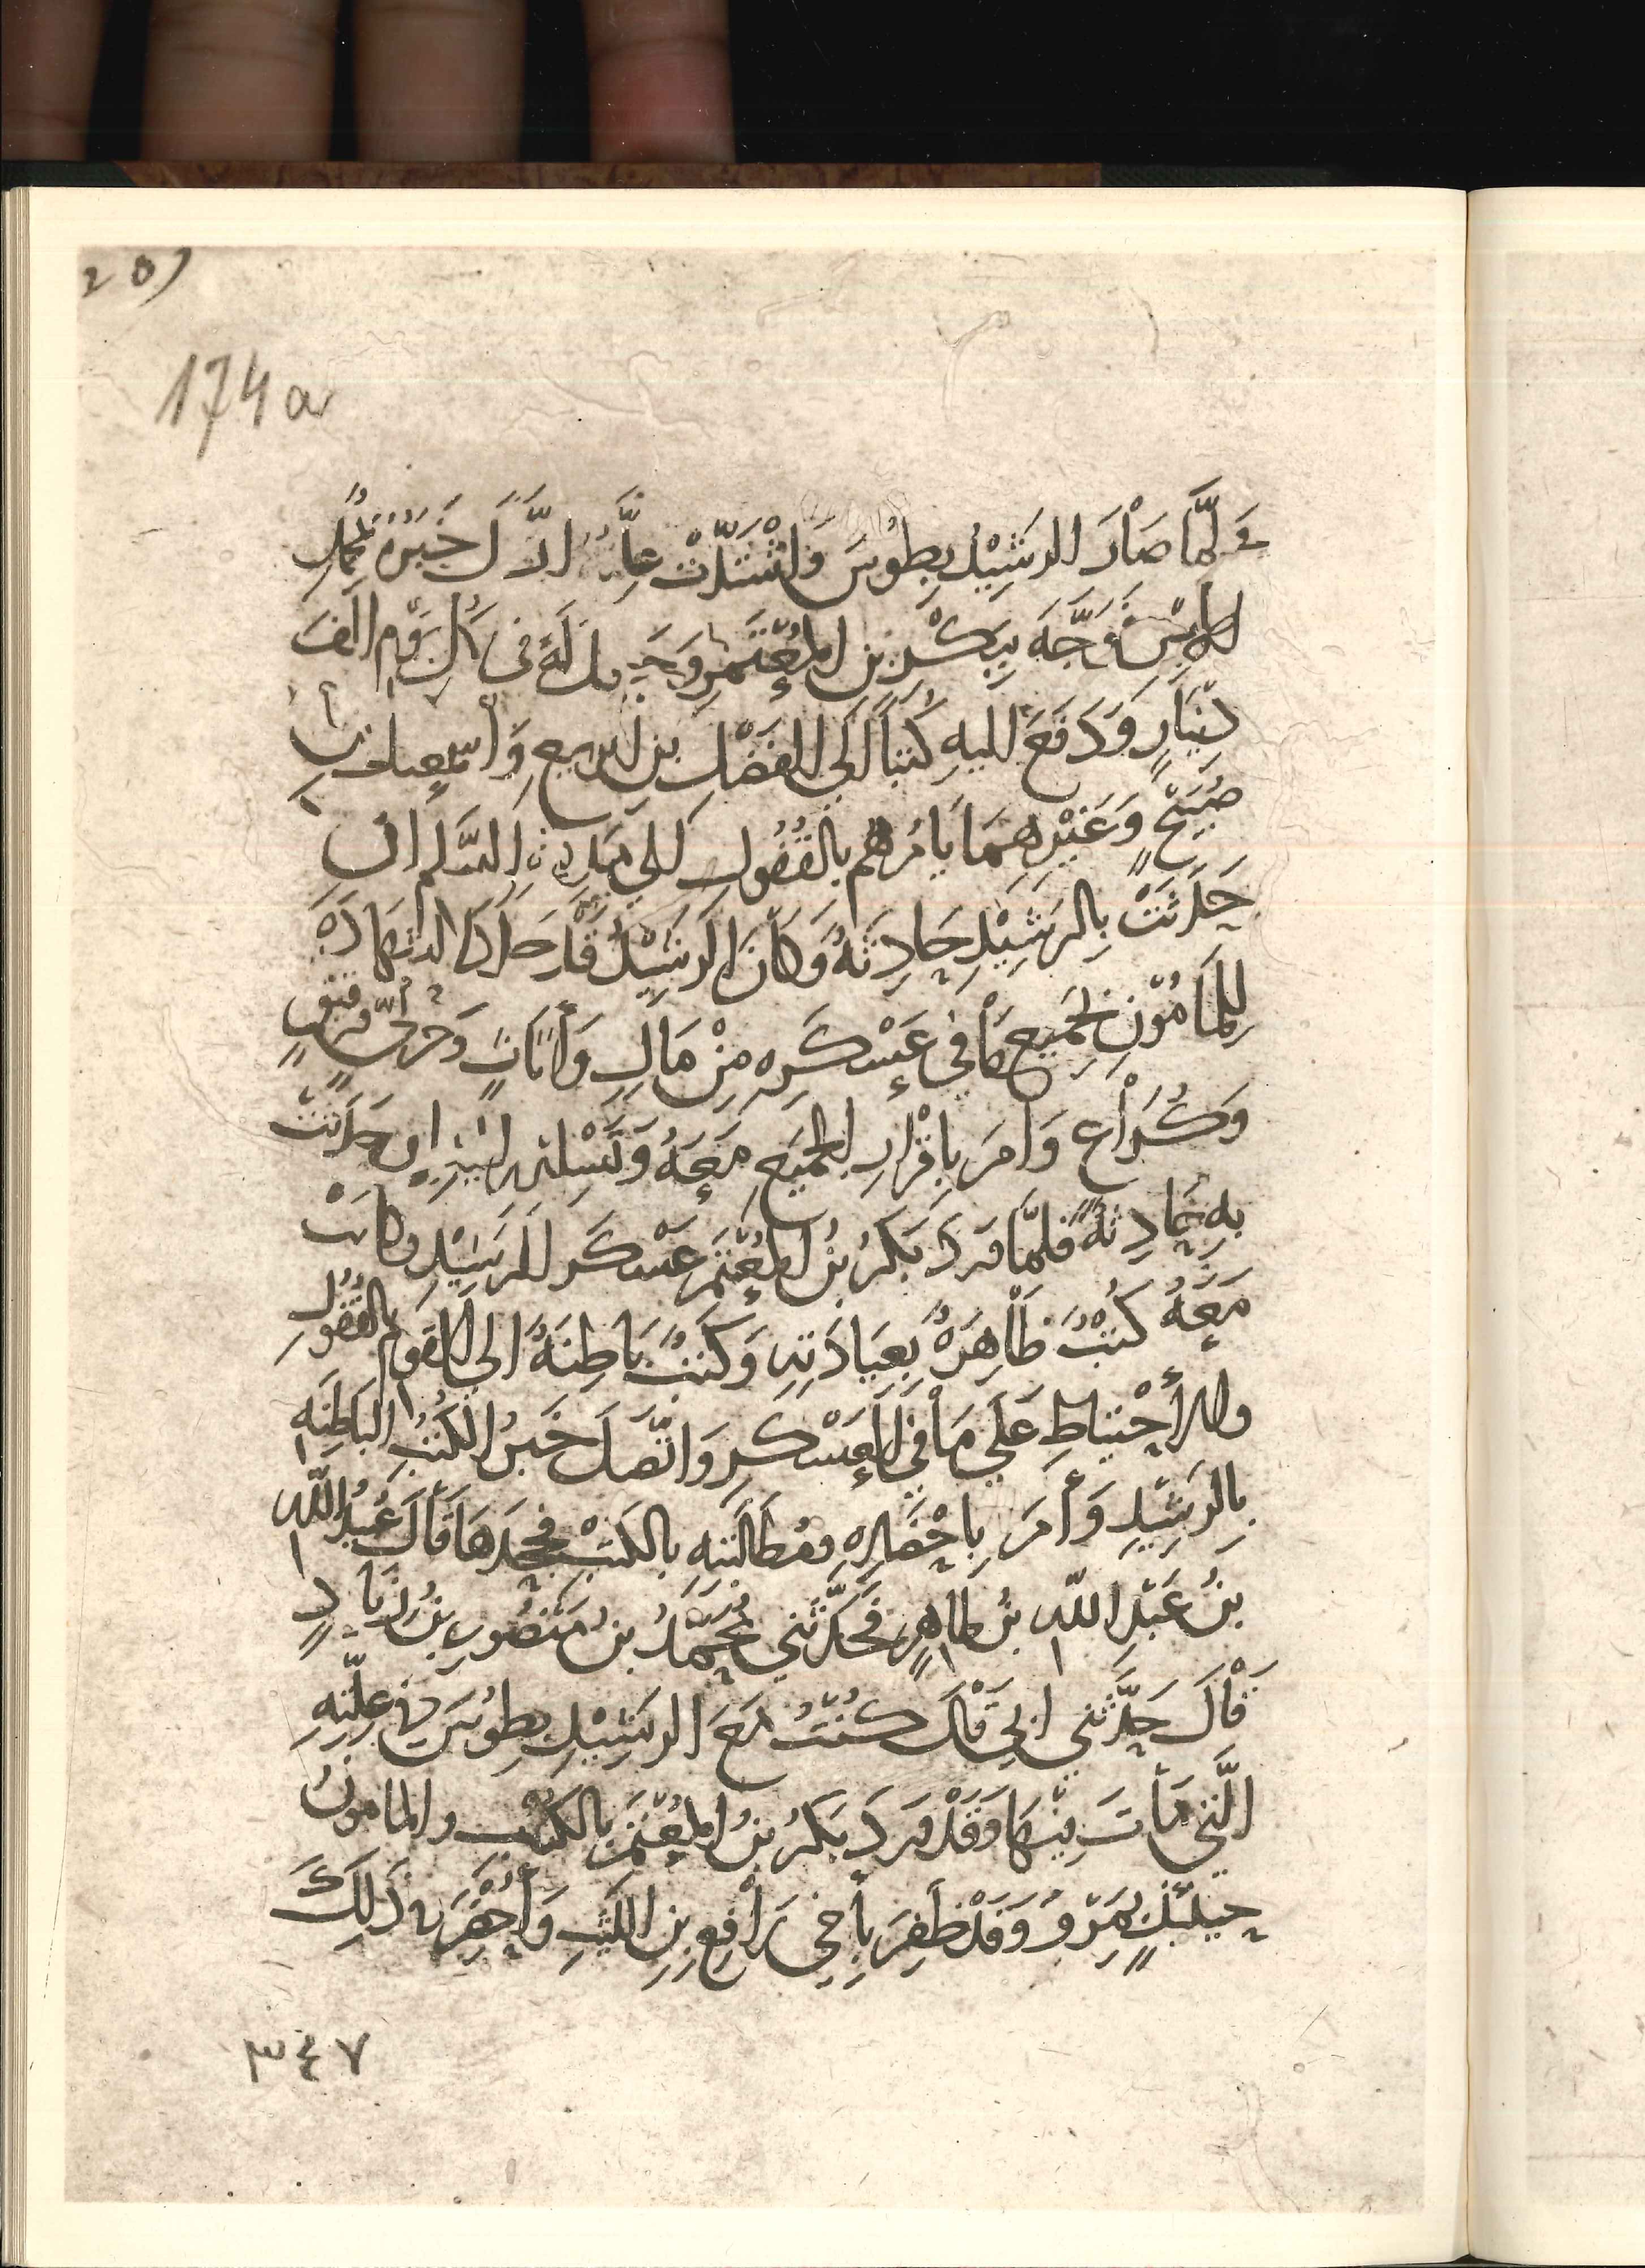 209
174a
وَلَمَّا صَارَ الرَشِيْدُ بِطُوْسَ وَاشْتَدَّتْ عِلَّتُهُ اتّصَلَ خَبَرُهُ بمُحَمَّدٍ
الامِيْنِ فَوَجَّهَ بِبَكْرِ بنِ المُعْتَمِرِ وَجَعَلَ لَهُ فى كُلِّ يَوْمٍ الفَ
دِيْنَارٍ وَدَفَعَ اليهِ كُتباً الَى الفَضْلِ بنِ الربيعِ وَاسْمعيلَ بنِ
صُبَيْحٍ وَغَيْرِهِمَا يَامُرُهُم بِالقُفُولِ الى مَدِينةِ السَّلمِ ان
حَدَثَتْ بِالرَشِيْدِ حَادِثَةٌ وَكَانَ الرَشِيْدُ قَد جَدَّدَ الشهَادَةَ
لِلمَامُوْنِ بجَمِيعِ مَا في عَسْكَرِهِ مِنْ مَالٍ وَأثَاثٍ وَخُرْثِيٍّ وَرَقيقٍ
وَكُرَاعٍ وَامَرَ بِاقْرَارِ الجَمِيعِ مَعَهُ وَتَسْلِيْمِهِ اليْهِ ان حَدَثَتْ
بِهِ حَادِثةٌ فلمّا وَرَدَ بَكْرُ بنُ المُعْتَمِر عَسْكَر الرَشِيْدِ وكانتْ
مَعَهُ كُتُبٌ ظَاهِرَةٌ بِعِيَادَتِهِ وَكتبٌ بَاطِنَةٌ الى القَوْمِ بِالقُفُولِ
والاحْتياطِ عَلَى مَا فِي العَسْكَرِ وَاتّصَلَ خَبَرُ الكُتُبِ البَاطِنَهِ
بِالرَشِيْدِ وَأمَرَ بِاحْضَارِهِ ومُطَالَبَتِهِ بِالكتبِ فجَحَدَهَا قَالَ عُبَيْدُ اللّهِ
بنُ عَبْدِ اللّه بنِ طاهرٍ فَحَدَّثَني مُحَمَّدُ بنُ مَنْصُورِ بنُ زِيَادٍ
قْالَ حَدَّثَني ابي قَالَ كُنْتُ مَعَ الرَشِيْدِ بِطُوْسَ فى عِلّتِهِ
الّتي مَاتَ فِيْهَا وَقَدْ وَرَدَ بَكرُ بنُ المُعْتَمِرِ بالكتب والمامونُ
حِيْنَئِذٍ بِمَرْوَ وَقَدْ ظَفِرَ بِأَخِي رَافِعِ بنِ اللّيْثِ وَأُحْضِرَ فى ذَلِكَ
٣٤٧